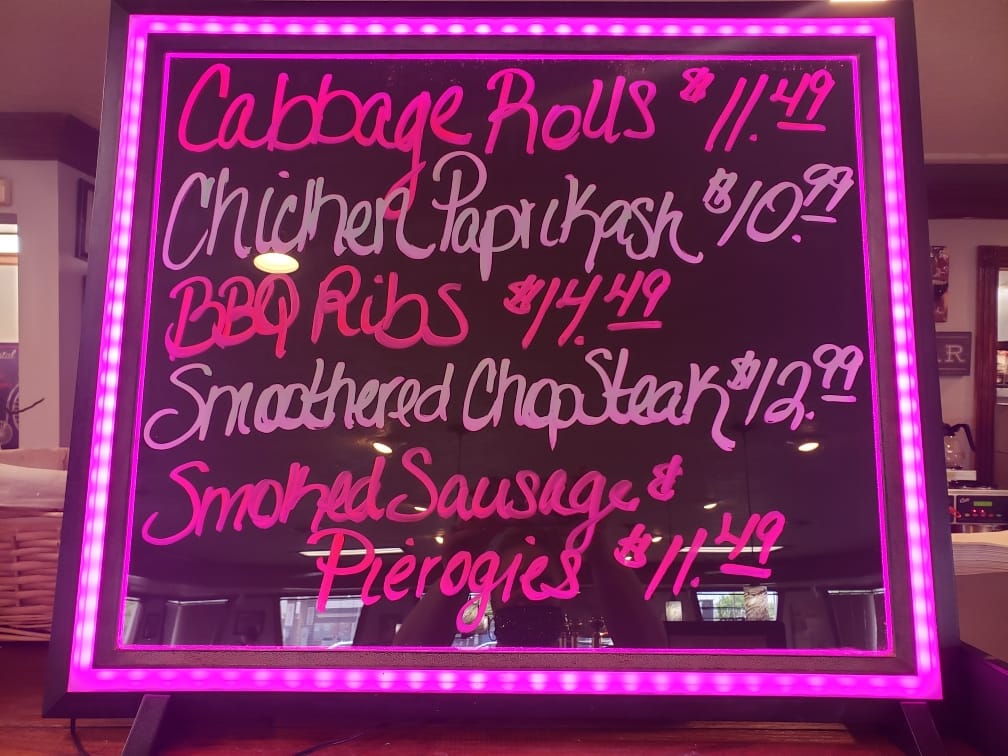 Cabbage Rolls $11.49
Chicken Paprikash $10.99
BBQ Ribs $14.49
Smoothered Chop Steak $12.99
Smoked Sausage &
Pierogies $11.49